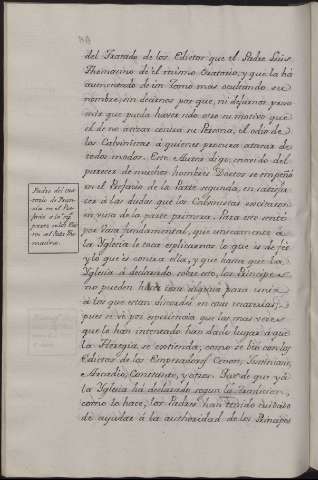 del Tratado de los Edictos que el Padre Luis
Thomasino de el mismo Oratorio, y que la há
aumentado de un Tomo mas ocultando su
nombre, sin decirnos por que, ni dejarnos pensar
más que puda haver sido otro su motivo que
el de no atraer contra su Persona, el odio de
los Calvinistas á quienes procura atacar de
todos modos. Este Autor digo, movido del
parecer de muchos hombres Doctos se empeñó
en el Prefacio de la Parte segunda, en satisfa-
cer á las dudas que los Calvinistas excitaron
en vista de la parte primera. Para esto sentó
por vasa fundamental, que unicamente á
la Yglesia le toca explicarnos lo que es de fé
y lo que es contra ella, y que hasta que la
Yglesia á declarado sobre esto, los Principes
no pueden hacer cosa alguna para unir
á los que están divididos en estas materias;
pues se vé por experiencia que las mas veces
que lo han intentado han dado lugar á que
la Heregia se extienda, como se vió con los
Edictos de los Emperadores Cenon, Justiniano,
Heraclio, Constante, y otros. Pero de que yá
la Yglesia há declarado segun la Tradicion,
como lo hace, los Padres han tenido cuidado
de ayudar á la authoridad de los Principes
Padre del Ora-
torio de Fran-
cia en el Pre-
facio